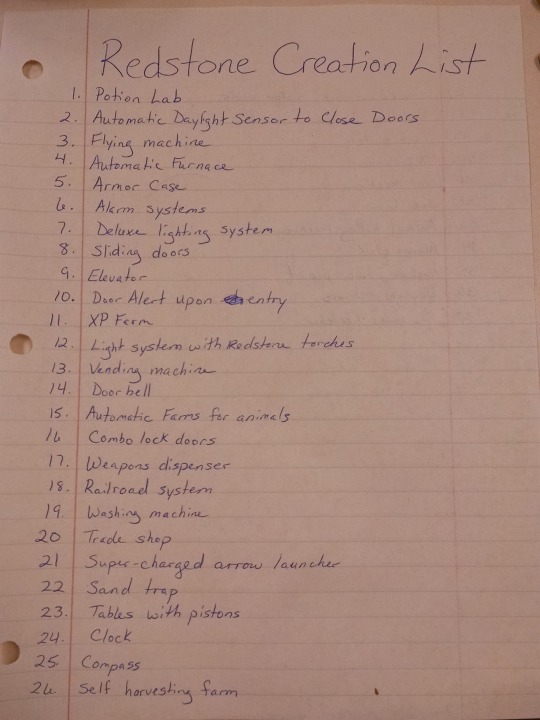 Redstone Creation List
1. Potion Lab
2. Automatic Daylight Sensor to Close Doors
3. Flying machine
4. Automatic Furnace
5. Armor Case
6. Alarm systems
7. Deluxe lighting system
8. Sliding doors
9. Elevator
10. Door Alert upon entry
11. XP Farm
12. Light system with Redstone torches
13. Vending machine
14. Door bell
15. Automatic Farms for animals
16 Combo lock doors
17. Weapons dispenser
18. Railroad system
19. Washing machine
20 Trade shop
21 Super-charged arrow launcher
22 Sand trap
23. Tables with pistons
24. Clock
25 Compass
26. Self harvesting farm